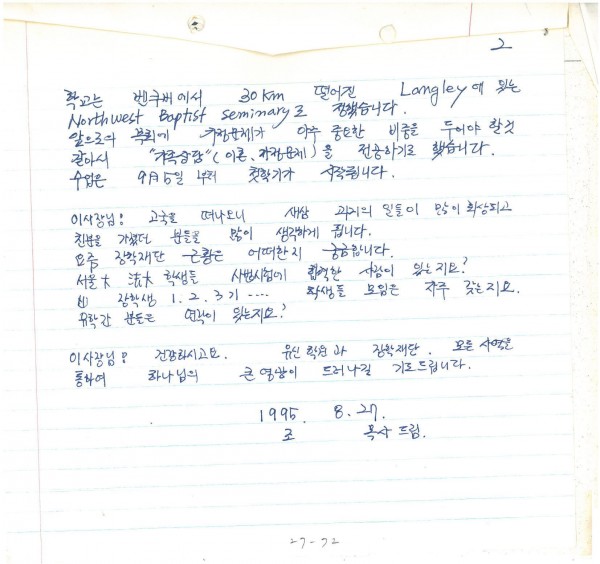 2
학교는 벤쿠버에서 30Km 떨어진 Langley에 있는
Northwest Baptist Seminary로 정했습니다.
앞으로의 목회에 가정문제가 아주 중요한 비중을 두어야 할것
같아서 "가족상담"(이혼, 가정문제)을 전공하기로 했습니다.
수업은 9月5일 부터 첫학기가 시작됩니다.
이사장님! 고국을 떠나오니 새삼 과거의 일들이 많이 회상되고
친분을 가졌던 분들을 많이 생각하게 됩니다.
요즘 장학재단 근황은 어떠한지 궁금합니다.
서울大 法大 학생들 사법시험에 합격한 사람이 있는지요?
장학생 1. 2. 3기 .... 학생들 모임은 자주 갖는지요.
유학간 분들은 연락이 있는지요?
이사장님! 건강하시고요. 유신 학원과 장학재단. 모든 사역을
통하여 하나님의 큰 영광이 드러나길 기도드립니다.
1995. 8. 27.
조 목사 드림.
27-72